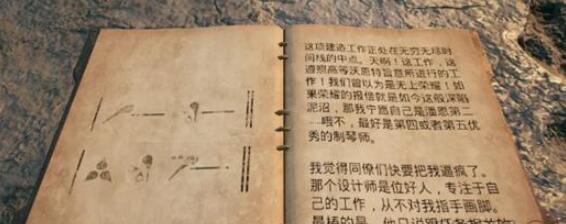 这项建造工作正处在无穷无尽时
间线的中点。天啊！这工作，这
遵照高等沃恩特旨意所进行的工
作！我们曾以为是无上荣耀！如
果荣耀的报偿就是如今这般深陷
泥沼，那我宁愿自己是潘恩第二
……哦不，最好是第四或者第五优
秀的制琴师。
我觉得同僚们快要把我逼疯了。
那个设计师是位好人，专注于自
己的工作，从不对我指手画脚。
最棒的是，他只说跟任务相关的